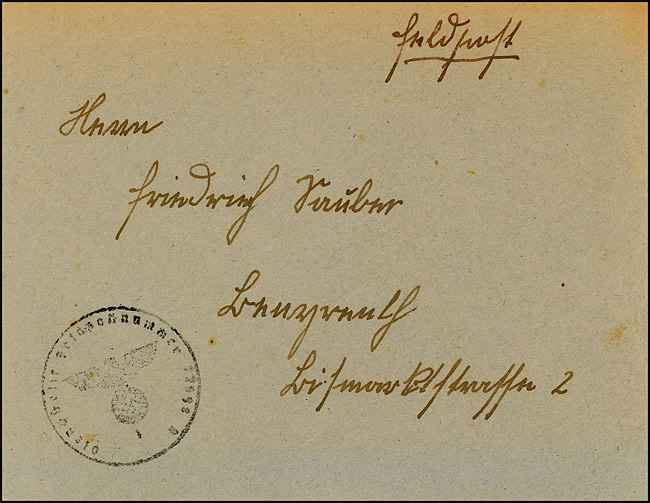 Feldpost
Herrn
Friedrich Sauber
Bismarkstrasse 2
Dienststelle Feldpostnummer